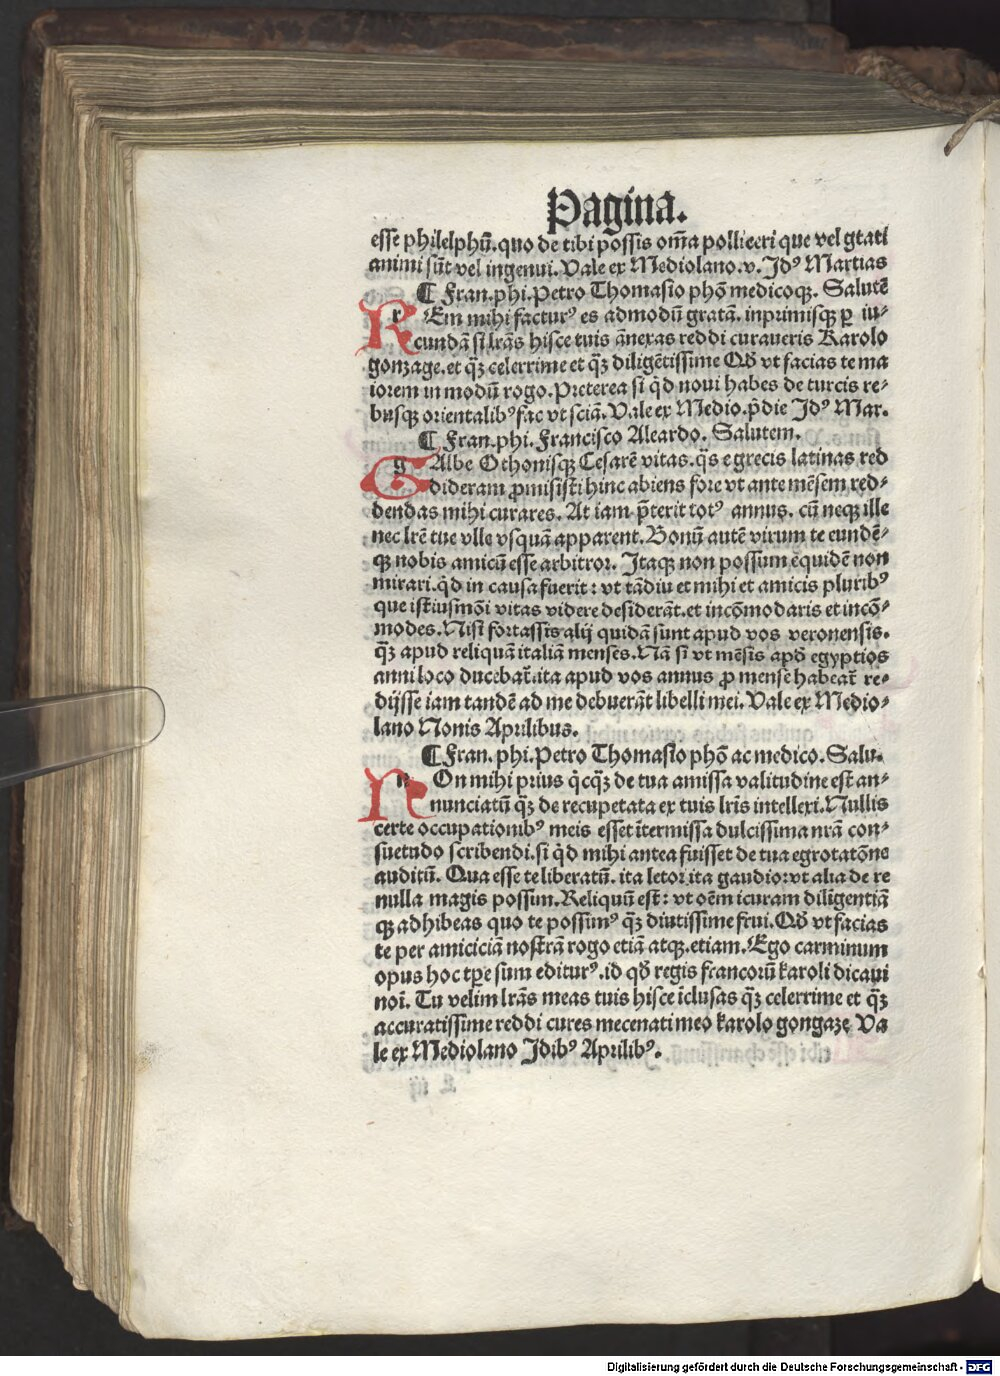 Pagina.
esse philelphū.quo de tibi possis om̄a polliceri que vel gtati
animi sūt vel ingenui. Vale ex Mediolano.v. Jdꝰ Martias
¶ Fran.phi. Petro Thomasio phō medicoqꝫ. Salutē
r Em mihi facturꝰ es admodū gratā. inprimisqꝫ ꝑ iu⸗
cundā si lr̄as hisce tuis ānexas reddi curaueris Karolo
gonzage.et qꝫ celerrime et qꝫ diligētissime Qd̄ vt facias te ma
iorem in modū rogo. Preterea si qd̄ noui habes de turcis re⸗
busqꝫ orientalibꝰ fac vt sciā. Vale ex Medio.p̄die Jdꝰ Mar.
¶ Fran.phi. Francisco Aleardo. Salutem.
g Albe Othonisqꝫ Cesarē vitas. qs̄ e grecis latinas red
dideram ꝓmisisti hinc abiens fore vt ante mēsem red⸗
dendas mihi curares. At iam p̄terit totꝰ annus. cū neqꝫ ille
nec lrē tue vlle vsquā apparent. Bonū autē virum te eundē⸗
qꝫ nobis amicū esse arbitror. Itaqꝫ non possum equidē non
mirari. qd̄ in causa fuerit : vt tādiu et mihi et amicis pluribꝰ
que istiusmōi vitas videre desiderāt. et incōmodaris et incō⸗
modes. Nisi fortassis alij quidā sunt apud vos veronensis.
qꝫ apud reliquā italiā menses. Nā si vt mēsis apd̄ egyptios
anni loco ducebat̄. ita apud vos annus ꝓ mense habeat̄ re⸗
dijsse iam tandē ad me debuerāt libelli mei. Vale ex Medio⸗
lano Nonis Aprilibus.
¶ Fran. phi. Petro Thomasio phō ac medico. Salu.
n On mihi prius qcqꝫ de tua amissa valitudine est an⸗
nunciatū qꝫ de recupetata ex tuis lr̄is intellexi. Nullis
certe occupationibꝰ meis esset ītermissa dulcissima nrā con⸗
suetudo scribendi. si qd̄ mihi antea fuisset de tua egrotatōne
auditū. Qua esse te liberatū. ita letor. ita gaudio: vt alia de re
nulla magis possim. Reliquū est : vt oēm icuram diligentiā
qꝫ adhibeas quo te possimꝰ qꝫ diutissime frui. Qd̄ vt facias
te per amiciciā nostrā rogo etiā atqꝫ. etiam. Ego carminum
opus hoc tp̄e sum editurꝰ. id qd̄ regis francorū karoli dicaui
noī. Tu velim lr̄as meas tuis hisce īclusas qꝫ celerrime et qꝫ
accuratissime reddi cures mecenati meo karolo gongazę Va
le ex Mediolano Jdibꝰ Aprilibꝰ.
Digitalisierung gefördert durch die Deutsche Forschungsgemeinschaft - DFG